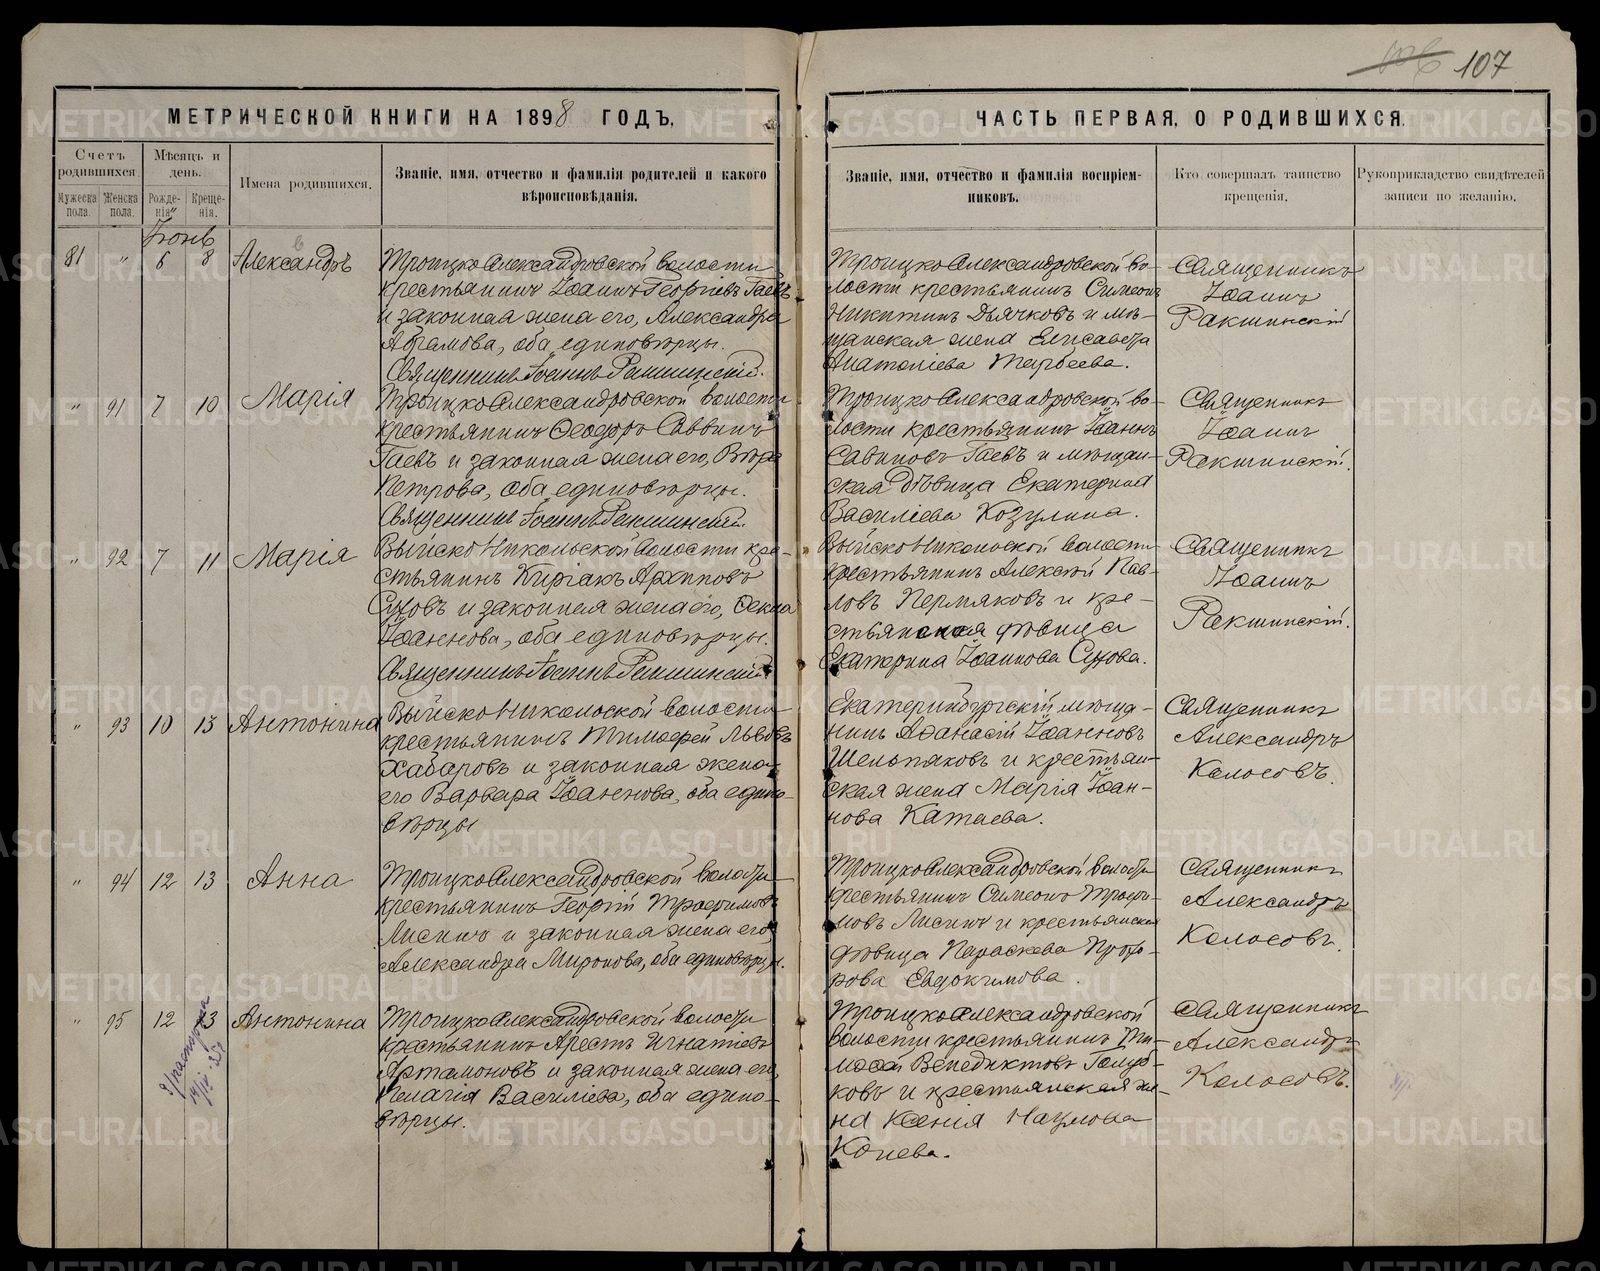 107
МЕТРИЧЕСКОЙ КНИГИ НА 1898 ГОДЪ,
ЧАСТЬ ПЕРВАЯ, О РОДИВШИХСЯ.
Счетъ родившихся.
Мѣсяцъ и день.
Имена родившихся.
Званіе, имя, отчество и фамилія родителей и какого вѣроисповѣданія.
Званіе, имя, отчество и фамилія воспріемниковъ.
Кто совершалъ таинство крещенія.
Рукоприкладство свидѣтелей записи по желанію.
Мужеска пола.
Женска пола.
Рожденія.
Крещенія.
Іюнь
81 " 6 8 Александръ
ТроицкоАлександровской волости
крестьянинъ Іоаннъ Георгіевъ Гаевъ
и законная жена его, Александра
Абрамова, оба единовѣрцы.
Священникъ Іоаннъ Ракшинскій.
ТроицкоАлександровской во-
лости крестьянинъ Симеонъ
Никитинъ Дьячковъ и мѣ-
щанская жена Елисавета
Анатоліева
Священникъ
Іоаннъ
Ракшинскій
" 91 7 10 Марія
ТроицкоАлександровской волости
крестьянинъ Ѳеодоръ Саввинъ
Гаевъ и законная жена его, Вѣра
Петрова, оба единовѣрцы.
Священникъ Іоаннъ Ракшинскій.
ТроицкоАлександровской во-
лости крестьянинъ Іоаннъ
Савиновъ Гаевъ и мѣщан-
ская дѣвица Екатерина
Василіева Козулина.
Священникъ
Іоаннъ
Ракшинскій.
" 92 7 11 Марія
ВыйскоНикольской волости кре-
стьянинъ Киріакъ Архиповъ
Суховъ и законная жена его, Ѳекла
Іоаннова, оба единовѣрцы.
Священникъ Іоаннъ Ракшинскій.
ВыйскоНикольской волости
крестьянинъ Алексій Пав-
ловъ Пермяковъ и кре-
стьянская дѣвица
Екатерина Іоаннова Сухова.
Священникъ
Іоаннъ
Ракшинскій.
" 93 10 13 Антонина
ВыйскоНикольской волости
крестьянинъ Тимоѳей Львовъ
Хабаровъ и законная жена
его Варвара Іоаннова, оба едино-
вѣрцы
Екатеринбургскій мѣща-
нинъ Аѳанасій Іоанновъ
Шелопаковъ и крестьян-
ская жена Марія Іоан-
нова Катаева.
Священникъ
Александръ
Колосовъ.
" 94 12 13 Анна
ТроицкоАлександровской волости
крестьянинъ Георгій Трофимовъ
Лисинъ и законная жена его,
Александра Миронова, оба единовѣрцы.
ТроицкоАлександровской волости
крестьянинъ Симеонъ Трофи-
мовъ Лисинъ и крестьянская
дѣвица Параскева
Евдокимова.
Священникъ
Александръ
Колосовъ.
" 95 12 13 Антонина
ТроицкоАлександровской волости
крестьянинъ Арестъ Игнатіевъ
Артамоновъ и законная жена его,
Пелагія Василіева, оба едино-
вѣрцы.
ТроицкоАлександровской
волости крестьянинъ Ти-
моѳей Венедиктовъ Голуб-
ковъ и крестьянская же-
на Ксенія Наумова
Конева.
Священникъ
Александръ
Колосовъ.
METRIKI.GASO-URAL.RU